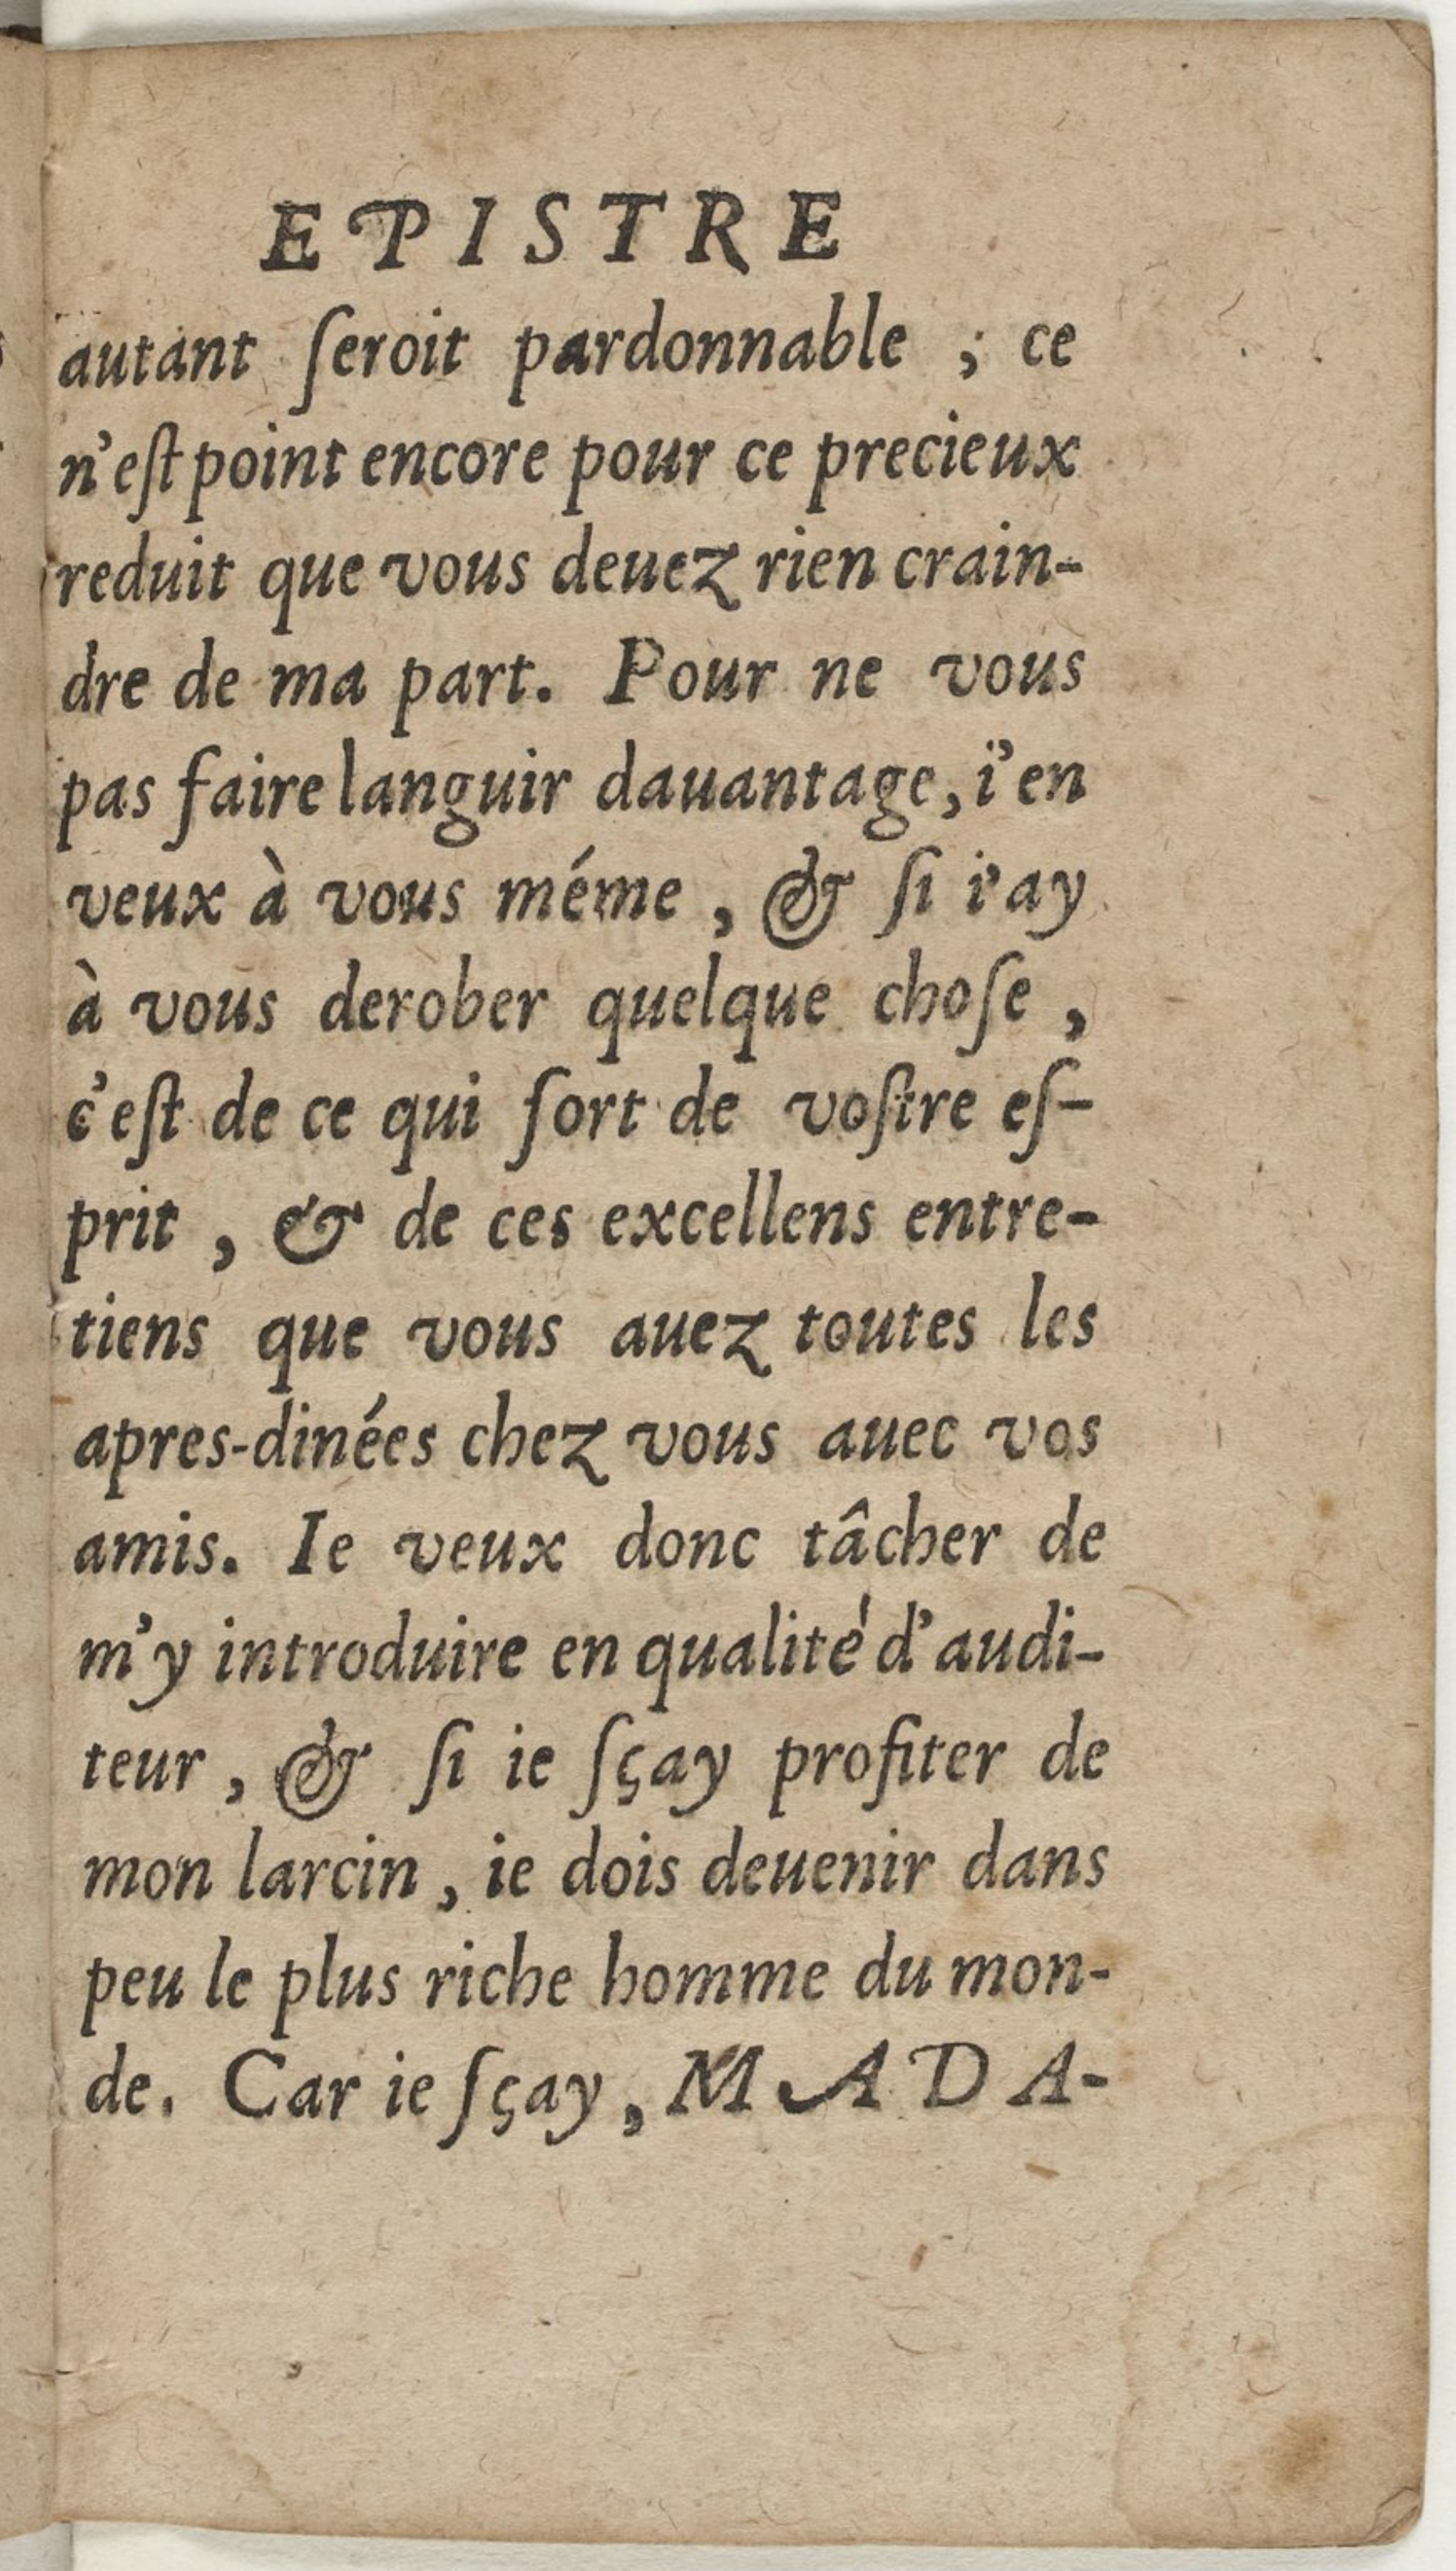 EPISTRE
autant ſeroit pardonnable ; ce
n'eſt point encore pour ce precieux
reduit que vous deuez rien crain-
dre de ma part. Pour ne vous
pas faire languir dauantage, i'en
veux à vous méme , & ſi i'ay
à vous derober quelque choſe ,
c'eſt de ce qui ſort de voſtre eſ-
prit , & de ces excellens entre-
tiens que vous auez toutes les
apres-dinées chez vous auec vos
amis. Ie veux donc tâcher de
m'y introduire en qualité d'audi-
teur , & ſi ie ſçay profiter de
mon larcin , ie dois deuenir dans
peu le plus riche homme du mon-
de. Car ie ſçay , MADA-